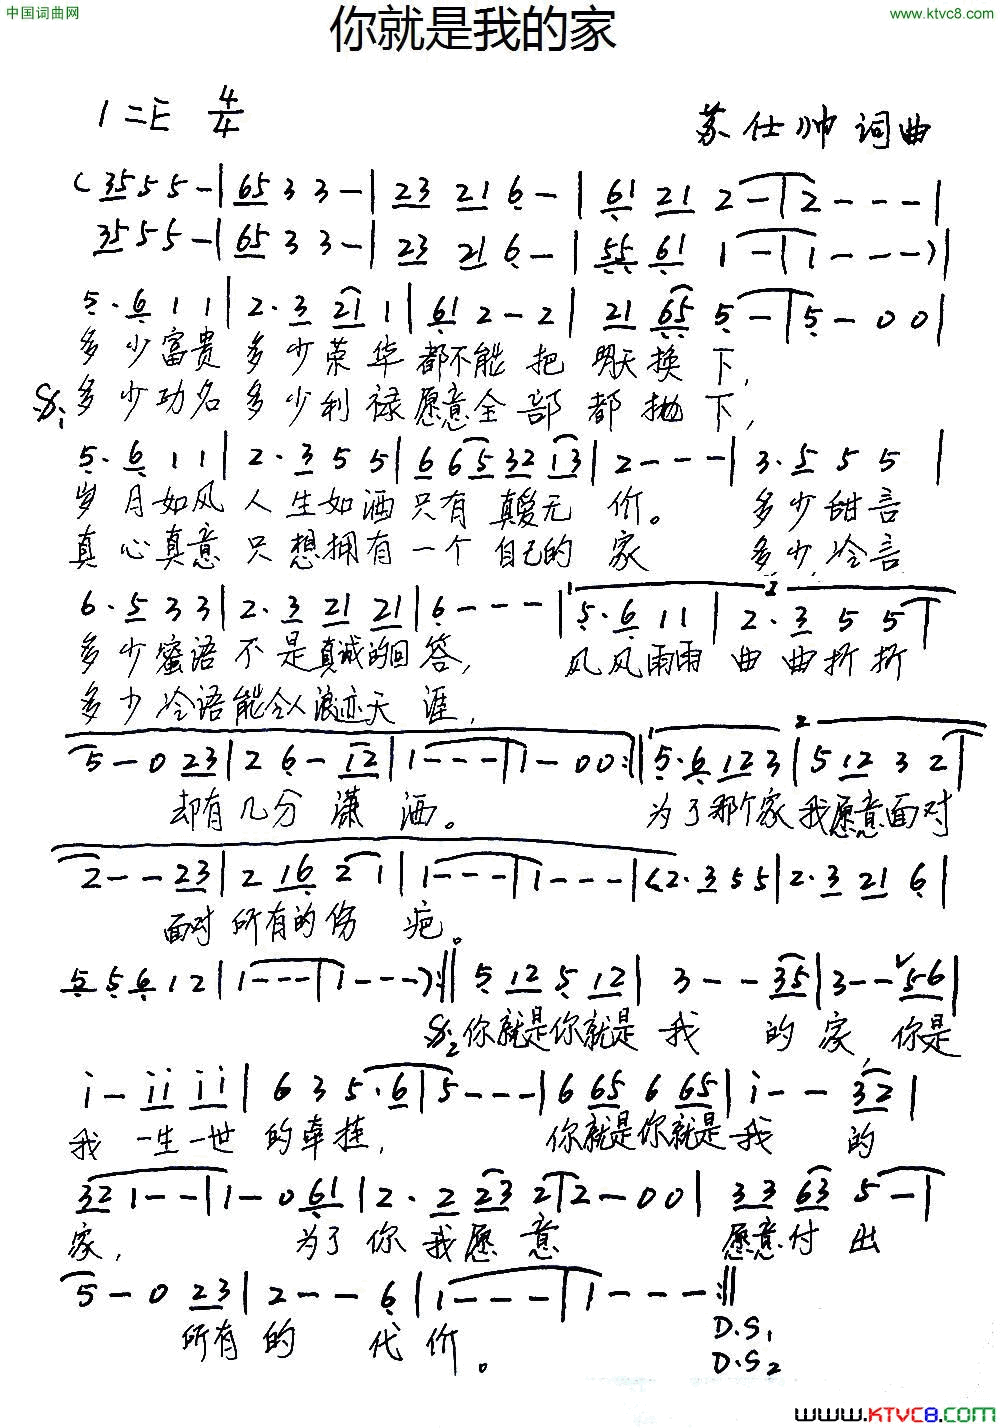 中国词曲网
www.ktvc8.com
你就是我的家
1=E 4/4
苏仕帅 词曲
(3555-|6533-|23 21 6-|61 21 2-|2---|
3555-|6533-|23 21 6-|55 61 1-|1---)|
5·6 1 1|2·3 21 1|61 2-2|21 65 5-|5-00|
多少富贵多少荣华都不能把明天换下，
𝄋1 多少功名多少利禄愿意全部都抛下，
5·6 1 1|2·3 5 5|6 65 32 13|2---|3·5 5 5|
岁月如风人生如酒只有真爱无价。多少甜言
真心真意只想拥有一个自己的家 多少冷言
6·5 3 3|2·3 21 21|6---|1 5·6 1 1|2 2·3 5 5|
多少蜜语不是真诚的回答，风风雨雨曲曲折折
多少冷语能令人浪迹天涯，
5-0 23|2 6-12|1---|1-00:‖1 5·6 12 3|2 5 12 3 2|
却有几分潇洒。为了那个家我愿意面对
2--23|2 16 2 1|1---|1---|(2·3 5 5|2·3 21 6|
面对所有的伤疤。
5 5 6 1 2|1---|1---):‖5 12 5 12|3--35|3--√56|
𝄋2 你就是你就是我的家，你是
i-ii ii|6 3 5·6|5---|6 65 6 65|i--32|
我一生一世的牵挂，你就是你就是我的
32 1--|1-0 61|2·2 23 2|2-00|33 63 5-|
家，为了你我愿意 愿意付出
5-0 23|2--6|1---|1---:‖
所有的代价。
D.S1
D.S2
www.KTVC8.com